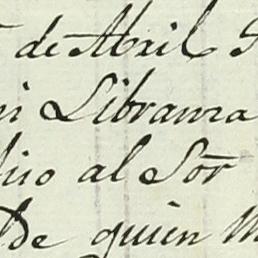 de Abril
Libranza
hijo al Sor
de quien